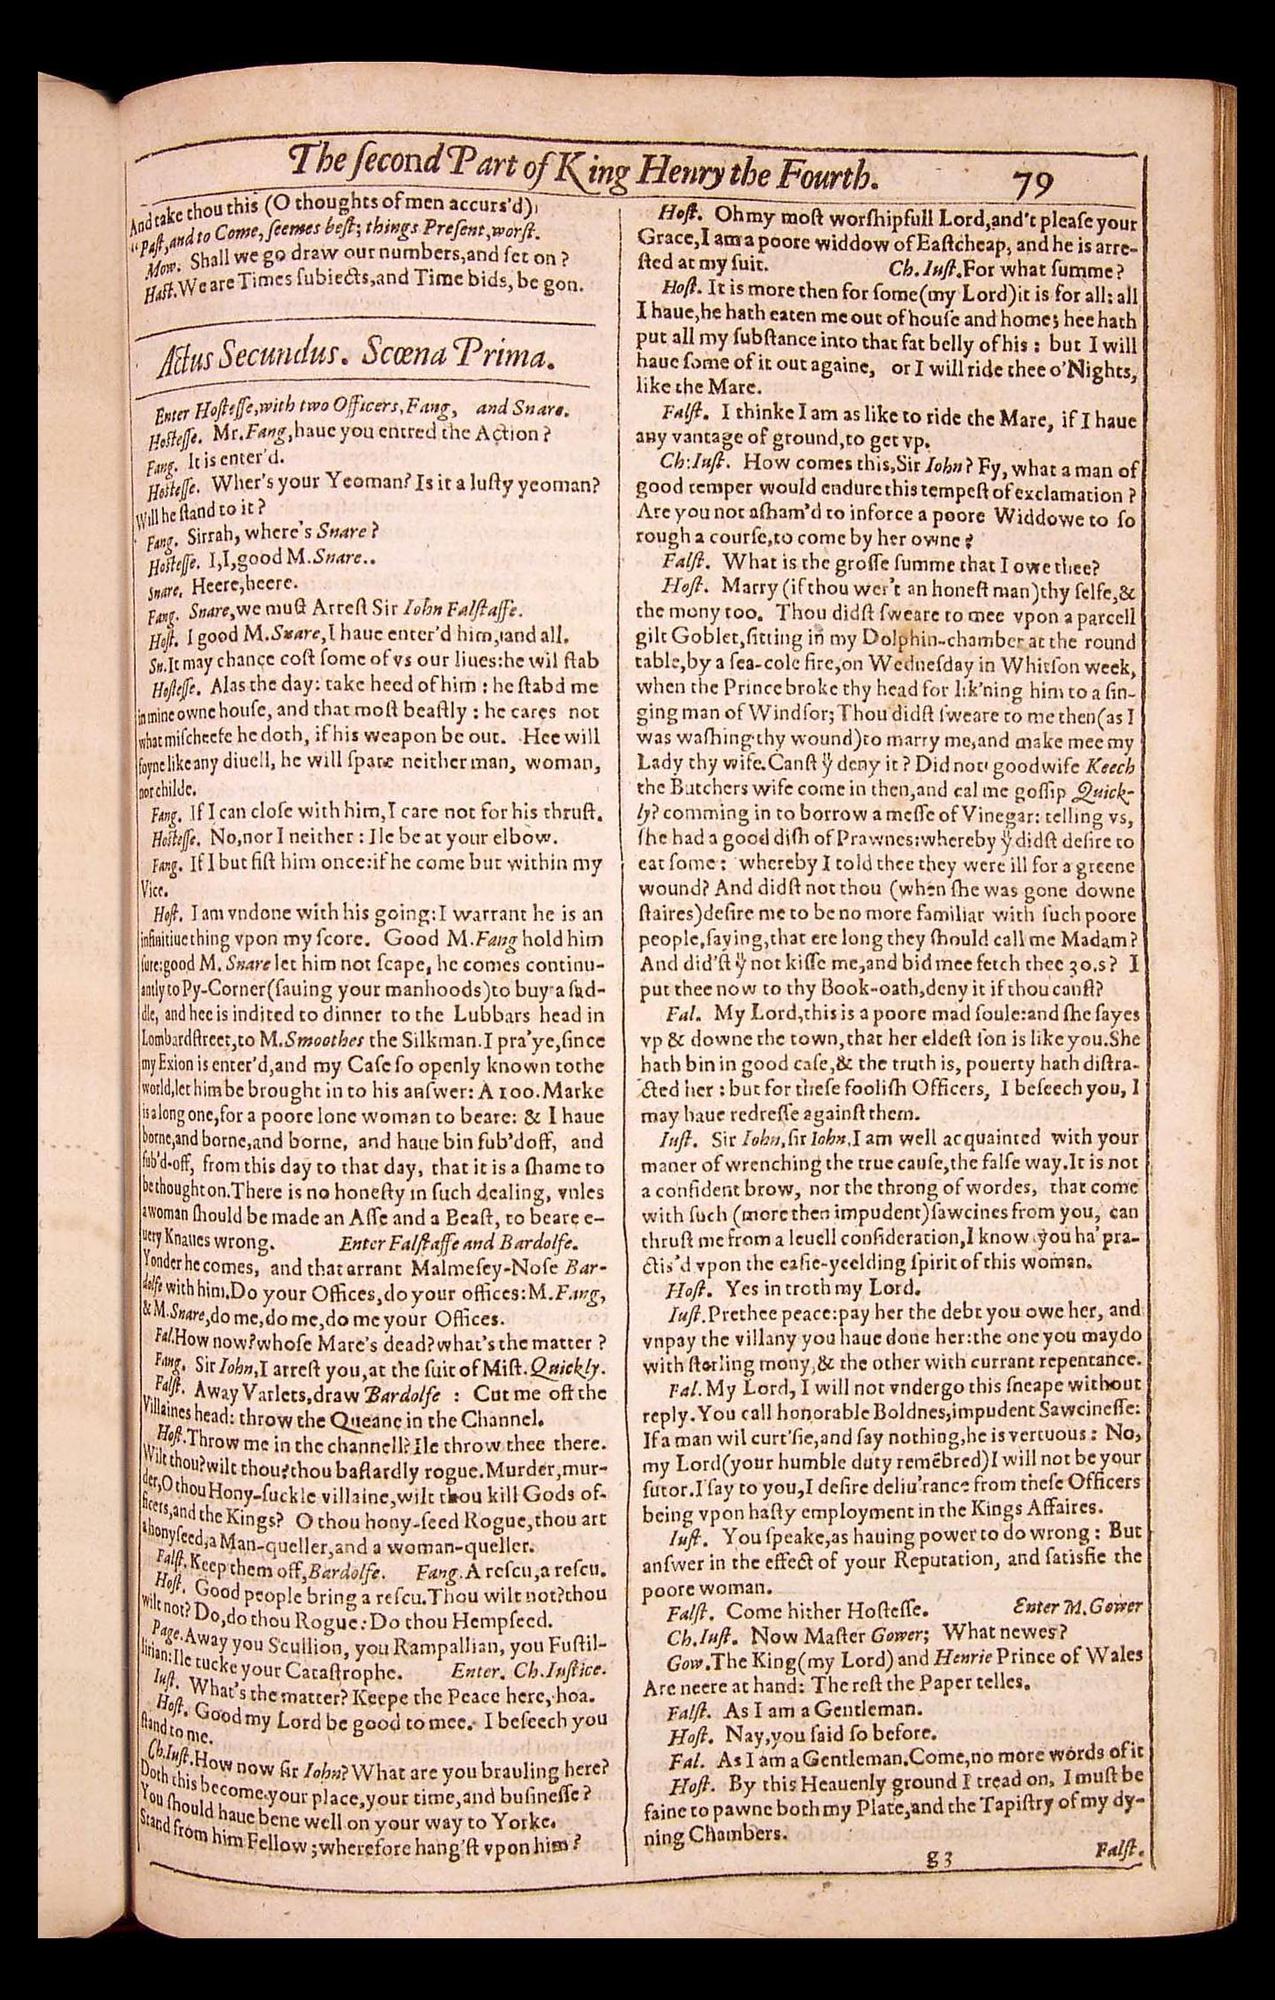 The ſecond Part of King Henry the Fourth. 79
And take thou this (O thoughts of men accurs'd)
“Paſt, and to Come, ſeemes beſt; things Preſent, worſt.
Mow. Shall we go draw our numbers, and ſet on?
Haſt. We are Times ſubiects, and Time bids, be gon.
Actus Secundus. Scœna Prima.
Enter Hosteſſe, with two Officers, Fang, and Snare.
Hosteſſe. Mr. Fang, haue you entred the Action?
Fang. It is enter'd.
Hosteſſe. Wher's your Yeoman? Is it a luſty yeoman?
Will he ſtand to it?
Fang. Sirrah, where's Snare?
Hosteſſe. I, I, good M. Snare..
Snare. Heere, heere.
Fang. Snare, we muſt Arreſt Sir Iohn Falſtaffe.
Hoſt. I good M. Snare, I haue enter'd him, and all.
Sn. It may chance coſt ſome of vs our liues: he wil ſtab
Hosteſſe. Alas the day: take heed of him: he ſtabd me
in mine owne houſe, and that moſt beaſtly: he cares not
what miſcheefe he doth, if his weapon be out. Hee will
foyne like any diuell, he will ſpare neither man, woman,
nor childe.
Fang. If I can cloſe with him, I care not for his thruſt.
Hosteſſe. No, nor I neither: Ile be at your elbow.
Fang. If I but fiſt him once: if he come but within my
Vice.
Hoſt. I am vndone with his going: I warrant he is an
infinitiue thing vpon my ſcore. Good M. Fang hold him
ſure: good M. Snare let him not ſcape, he comes continu-
antly to Py-Corner (ſauing your manhoods) to buy a ſad-
dle, and hee is indited to dinner to the Lubbars head in
Lombardſtreet, to M. Smoothes the Silkman. I pra'ye, ſince
my Exion is enter'd, and my Caſe ſo openly known to the
world, let him be brought in to his anſwer: A 100. Marke
is a long one, for a poore lone woman to beare: & I haue
borne, and borne, and borne, and haue bin fub'd off, and
fub'd-off, from this day to that day, that it is a ſhame to
be thought on. There is no honeſty in ſuch dealing, vnles
a woman ſhould be made an Aſſe and a Beaſt, to beare e-
uery Knaues wrong. Enter Falſtaffe and Bardolfe.
Yonder he comes, and that arrant Malmeſey-Noſe Bar-
dolfe with him. Do your Offices, do your offices: M. Fang,
& M. Snare, do me, do me, do me your Offices.
Fal. How now? whoſe Mare's dead? what's the matter?
Fang. Sir Iohn, I arreſt you, at the ſuit of Miſt. Quickly.
Falſt. Away Varlets, draw Bardolfe : Cut me off the
Villaines head: throw the Queane in the Channel.
Hoſt. Throw me in the channell? Ile throw thee there.
Wilt thou? wilt thou? thou baſtardly rogue. Murder, mur-
der, O thou Hony-ſuckle villaine, wilt thou kill Gods of-
ficers, and the Kings? O thou hony-ſeed Rogue, thou art
a honyſeed, a Man-queller, and a woman-queller.
Falſt. Keep them off, Bardolfe. Fang. A reſcu, a reſcu.
Hoſt. Good people bring a reſcu. Thou wilt not? thou
wilt not? Do, do thou Rogue: Do thou Hempſeed.
Page. Away you Scullion, you Rampallian, you Fuſtil-
lirian: Ile tucke your Cataſtrophe. Enter. Ch. Iuſtice.
Iuſt. What's the matter? Keepe the Peace here, hoa.
Hoſt. Good my Lord be good to mee. I beſeech you
ſtand to me.
Ch. Iuſt. How now ſir Iohn? What are you brauling here?
Doth this become your place, your time, and buſineſſe?
You ſhould haue bene well on your way to Yorke.
Stand from him Fellow; wherefore hang'ſt vpon him?
Hoſt. Oh my moſt worſhipfull Lord, and't pleaſe your
Grace, I am a poore widdow of Eaſtcheap, and he is arre-
ſted at my ſuit. Ch. Iuſt. For what ſumme?
Hoſt. It is more then for ſome (my Lord) it is for all: all
I haue, he hath eaten me out of houſe and home; hee hath
put all my ſubſtance into that fat belly of his: but I will
haue ſome of it out againe, or I will ride thee o' Nights,
like the Mare.
Falſt. I thinke I am as like to ride the Mare, if I haue
any vantage of ground, to get vp.
Ch: Iuſt. How comes this, Sir Iohn? Fy, what a man of
good temper would endure this tempeſt of exclamation?
Are you not aſham'd to inforce a poore Widdowe to ſo
rough a courſe, to come by her owne?
Falſt. What is the groſſe ſumme that I owe thee?
Hoſt. Marry (if thou wer't an honeſt man) thy ſelfe, &
the mony too. Thou didſt ſweare to mee vpon a parcell
gilt Goblet, ſitting in my Dolphin-chamber at the round
table, by a ſea-cole fire, on Wedneſday in Whitſon week,
when the Prince broke thy head for lik'ning him to a ſin-
ging man of Windſor; Thou didſt ſweare to me then (as I
was waſhing thy wound) to marry me, and make mee my
Lady thy wife. Canſt ẏ deny it? Did not goodwife Keech
the Butchers wife come in then, and cal me goſſip Quick-
ly? comming in to borrow a meſſe of Vinegar: telling vs,
ſhe had a good diſh of Prawnes: whereby ẏ didſt deſire to
eat ſome: whereby I told thee they were ill for a greene
wound? And didſt not thou (when ſhe was gone downe
ſtaires) deſire me to be no more familiar with ſuch poore
people, ſaying, that ere long they ſhould call me Madam?
And did'ſt ẏ not kiſſe me, and bid mee fetch thee 30.s? I
put thee now to thy Book-oath, deny it if thou canſt?
Fal. My Lord, this is a poore mad ſoule: and ſhe ſayes
vp & downe the town, that her eldeſt ſon is like you. She
hath bin in good caſe, & the truth is, pouerty hath diſtra-
cted her: but for theſe fooliſh Officers, I beſeech you, I
may haue redreſſe againſt them.
Iuſt. Sir Iohn, ſir Iohn, I am well acquainted with your
maner of wrenching the true cauſe, the falſe way. It is not
a confident brow, nor the throng of wordes, that come
with ſuch (more then impudent) ſawcines from you, can
thruſt me from a leuell conſideration, I know you ha' pra-
ctis'd vpon the eaſie-yeelding ſpirit of this woman.
Hoſt. Yes in troth my Lord.
Iuſt. Prethee peace: pay her the debt you owe her, and
vnpay the villany you haue done her: the one you may do
with ſterling mony, & the other with currant repentance.
Fal. My Lord, I will not vndergo this ſneape without
reply. You call honorable Boldnes, impudent Sawcineſſe:
If a man wil curt'ſie, and ſay nothing, he is vertuous: No,
my Lord (your humble duty remēbred) I will not be your
ſutor. I ſay to you, I deſire deliu'rance from theſe Officers
being vpon haſty employment in the Kings Affaires.
Iuſt. You ſpeake, as hauing power to do wrong: But
anſwer in the effect of your Reputation, and ſatisfie the
poore woman.
Falſt. Come hither Hoſteſſe. Enter M. Gower
Ch. Iuſt. Now Maſter Gower; What newes?
Gow. The King (my Lord) and Henrie Prince of Wales
Are neere at hand: The reſt the Paper telles.
Falſt. As I am a Gentleman.
Hoſt. Nay, you ſaid ſo before.
Fal. As I am a Gentleman. Come, no more words of it
Hoſt. By this Heauenly ground I tread on, I muſt be
faine to pawne both my Plate, and the Tapiſtry of my dy-
ning Chambers.
g3 Falſt.